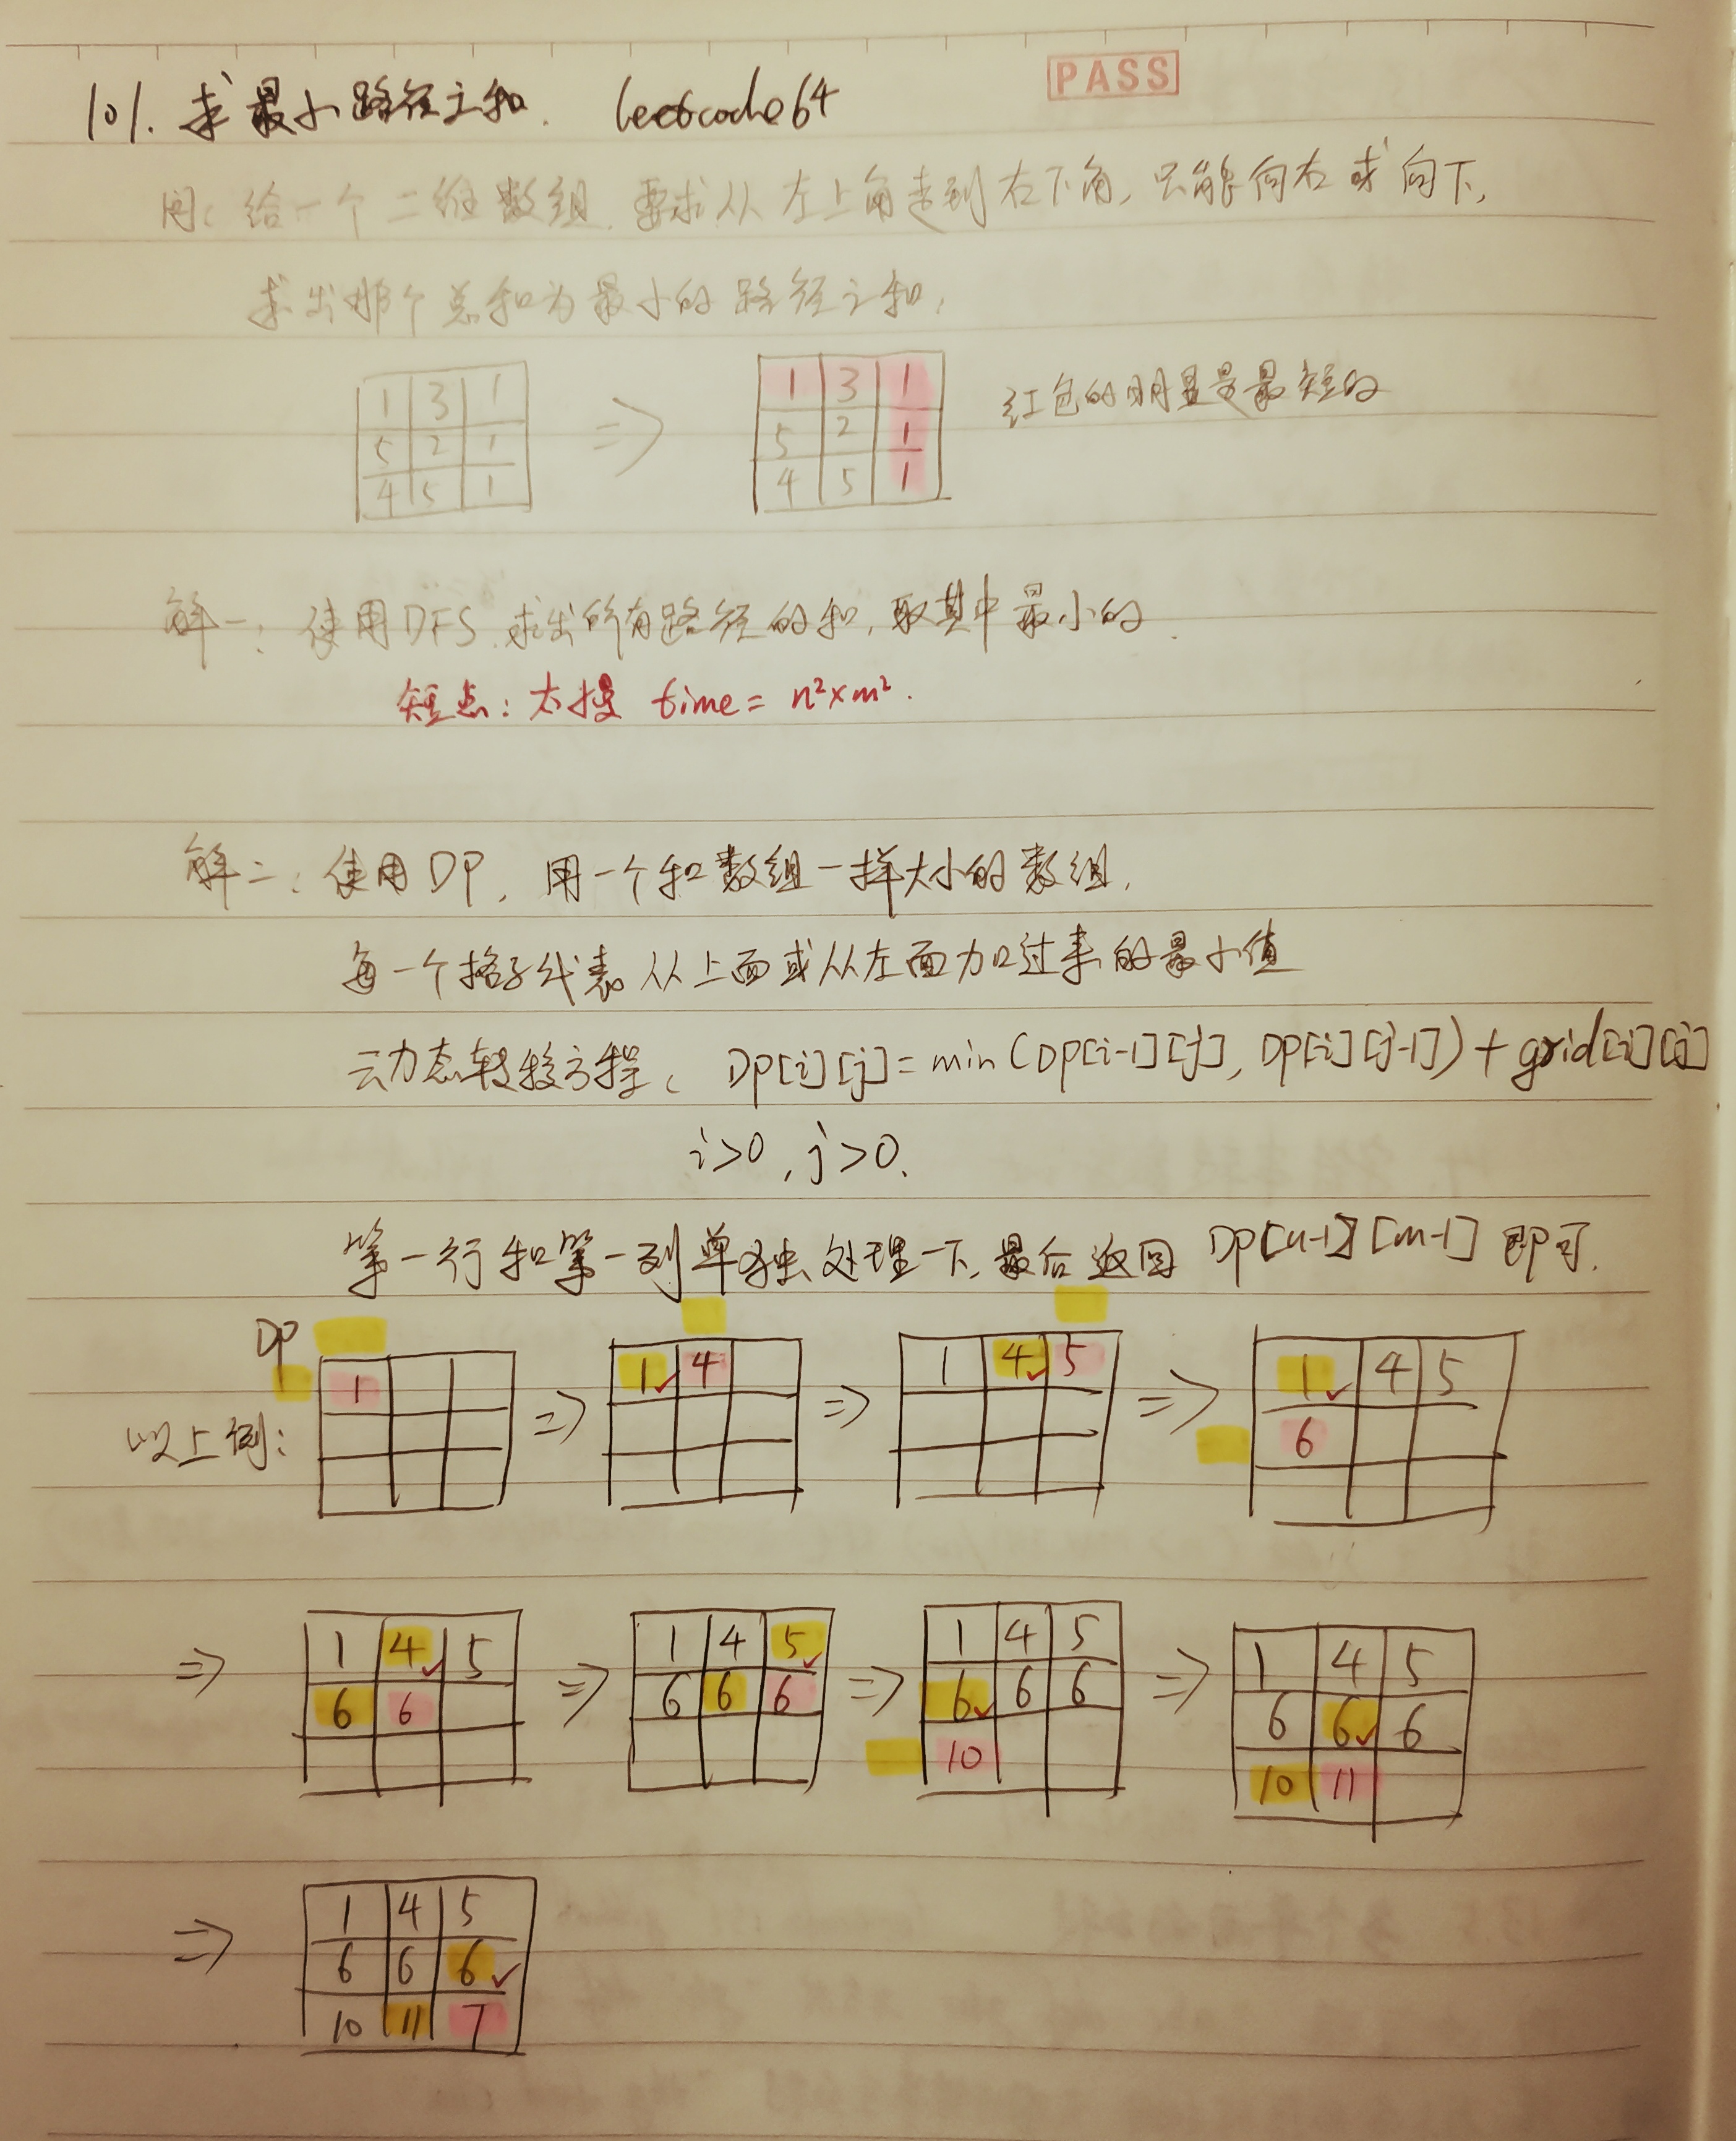 PASS
101. 求最小路径之和. leetcode64
问: 给一个二维数组, 要求从左上角走到右下角, 只能向右或向下,
求出那个总和为最小的路径之和.
1 3 1 ⇒ 1 3 1 红色的明显是最短的
5 2 1 5 2 1
4 5 1 4 5 1
解一: 使用DFS, 求出所有路径的和, 取其中最小的.
短点: 太慢 time = n²×m².
解二: 使用DP, 用一个和数组一样大小的数组,
每一个格子代表从上面或从左面加过来的最小值
动态转移方程: DP[i][j] = min(DP[i-1][j], DP[i][j-1]) + grid[i][j]
i>0, j>0.
第一行和第一列单独处理一下, 最后返回 DP[n-1][m-1] 即可.
DP
以上例: 1 ⇒ 1 4 ⇒ 1 4 5 ⇒ 1 4 5
6
⇒ 1 4 5 ⇒ 1 4 5 ⇒ 1 4 5 ⇒ 1 4 5
6 6 6 6 6 6 6 6 6 6 6
10 10 11
⇒ 1 4 5
6 6 6
10 11 7